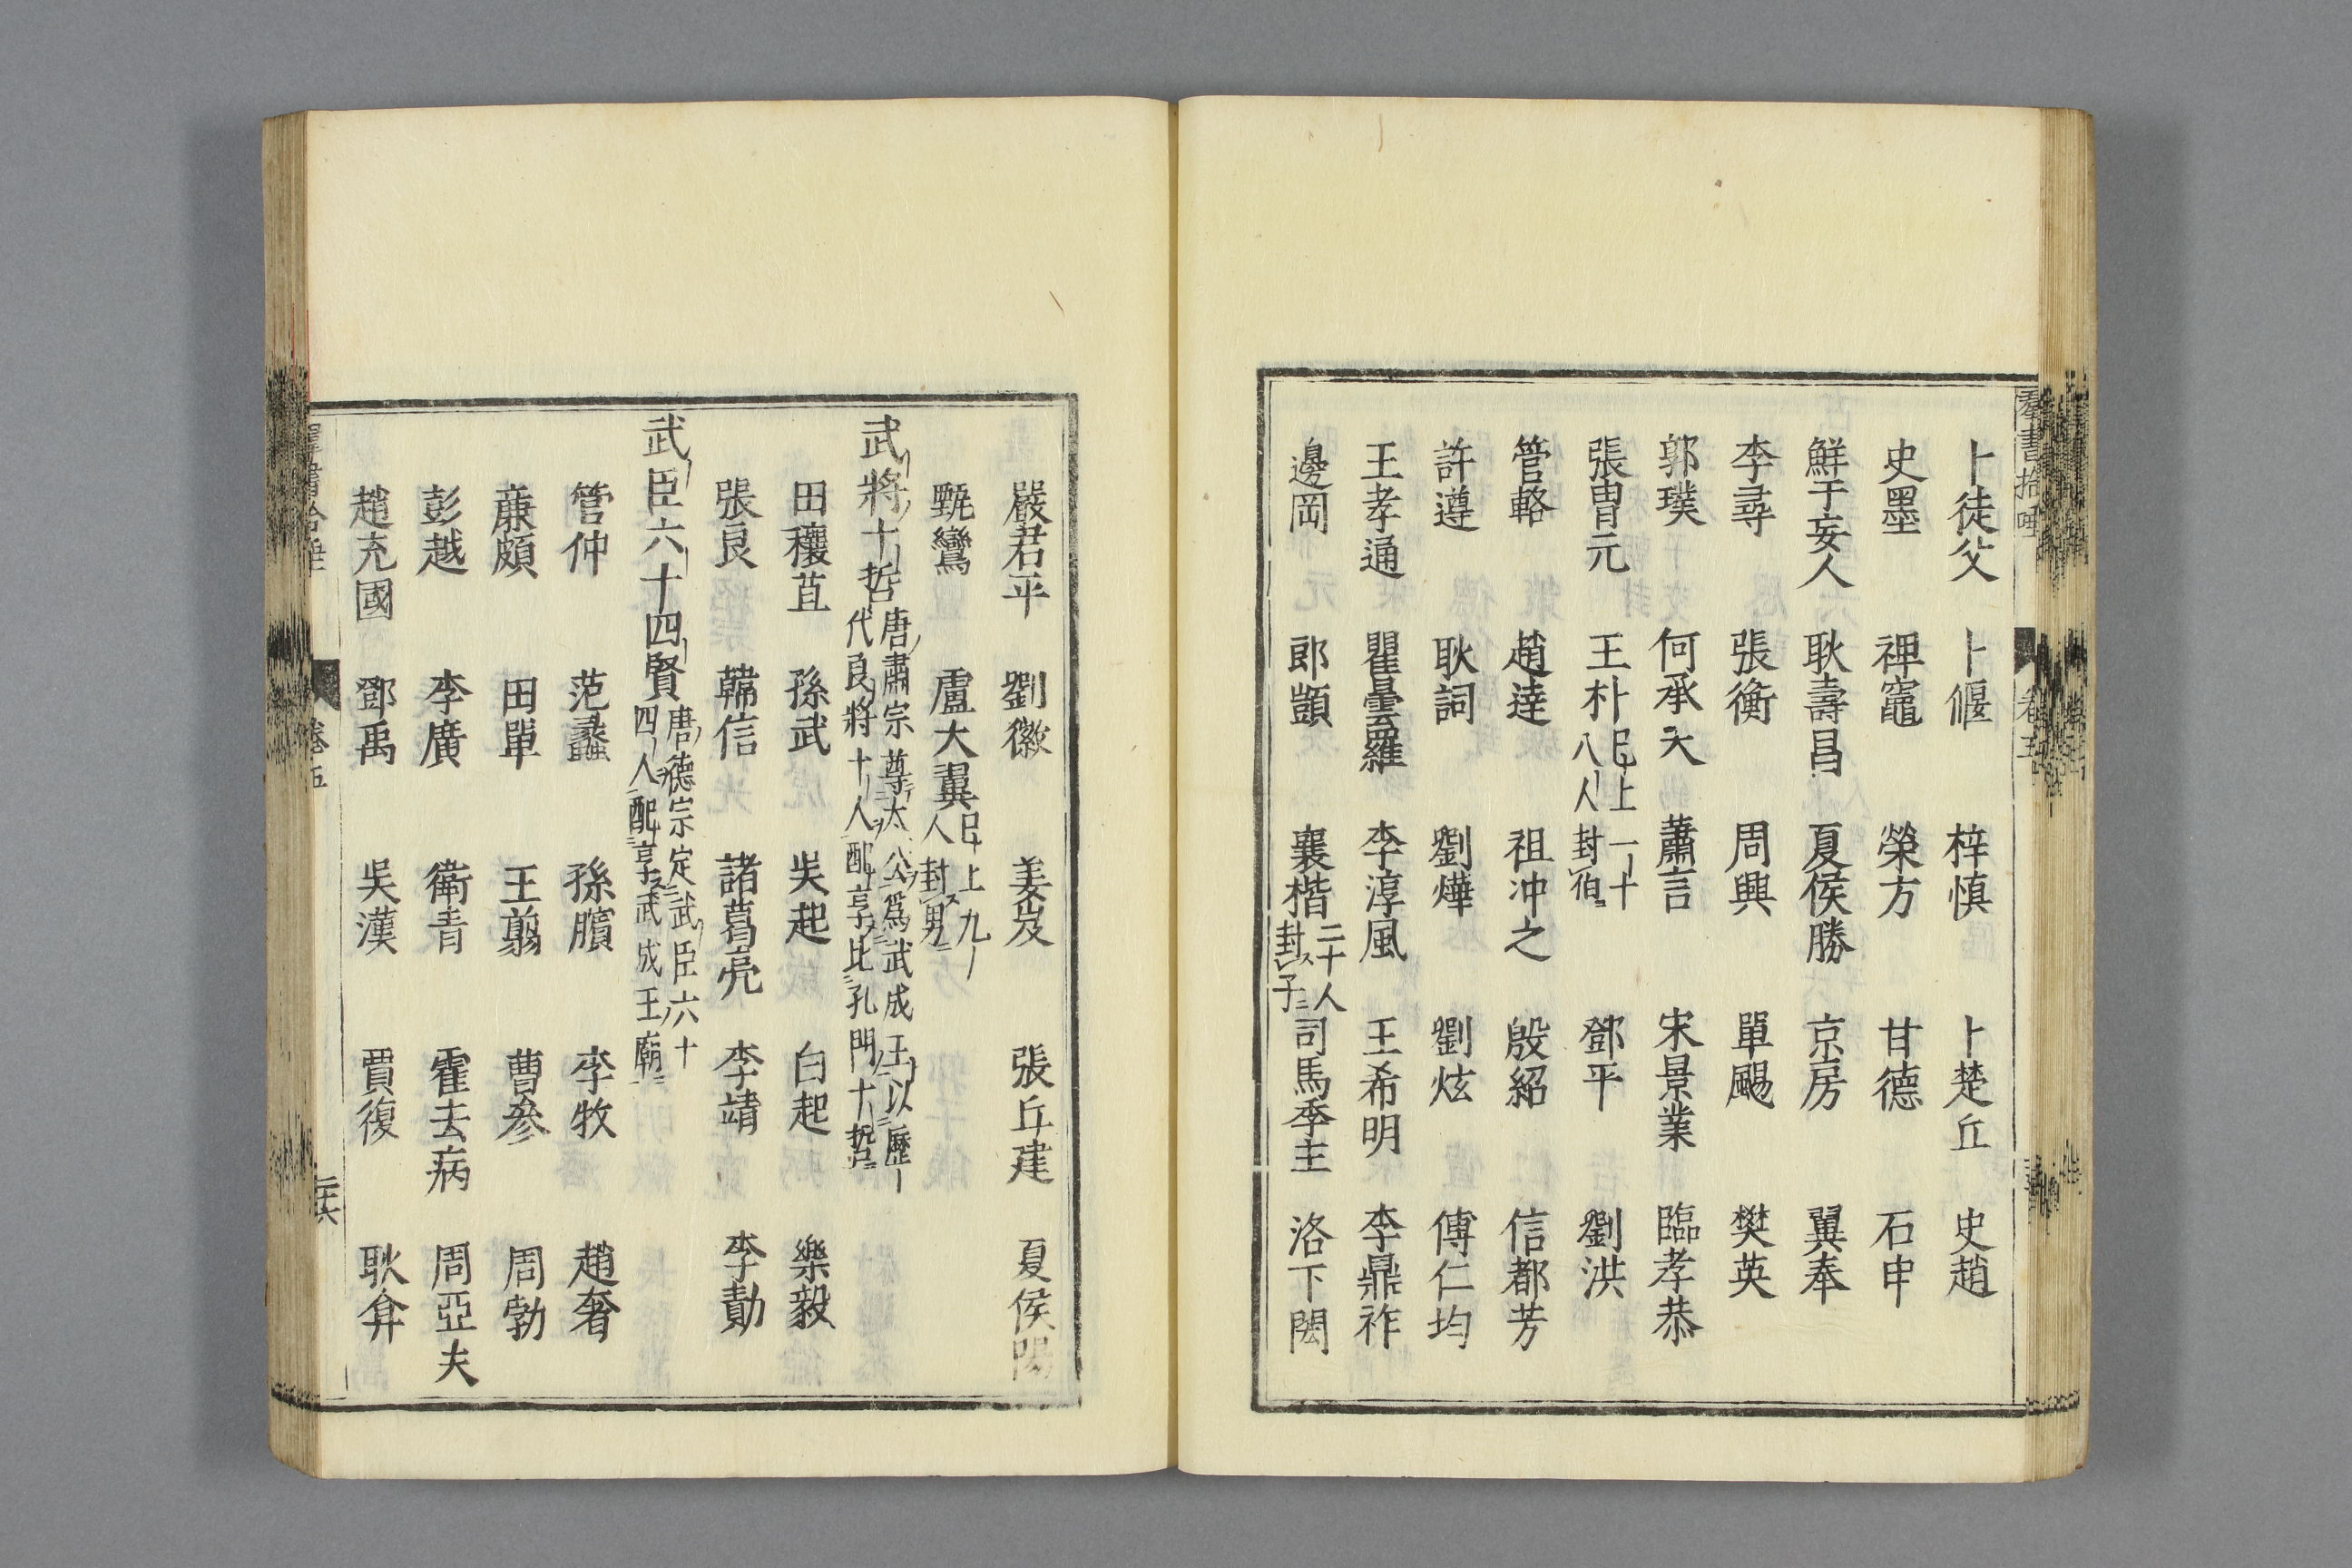 卜徒父 卜偃 梓慎 卜楚丘 史趙
史墨 裨竈 榮方 甘德 石申
鮮于妄人 耿壽昌 夏侯勝 京房 翼奉
李尋 張衡 周興 單颺 樊英
郭璞 何承天 蕭言 宋景業 臨孝恭
張冑元 王朴 已上一十八人封伯 鄧平 劉洪
管輅 趙達 祖冲之 殷紹 信都芳
許遵 耿詞 劉燁 劉炫 傅仁均
王孝通 瞿曇羅 李淳風 王希明 李鼎祚
邊岡 郎顗 襄楷 二十人封子 司馬季主 洛下閎
嚴君平 劉徽 姜岌 張丘建 夏侯陽
甄鸞 盧大翼 已上九人封男
武將十哲 唐肅宗尊太公爲武成王以歷代良將十人配享比孔門十哲
田穰苴 孫武 吳起 白起 樂毅
張良 韓信 諸葛亮 李靖 李勣
武臣六十四賢 唐德宗定武臣六十四人配享武成王廟
管仲 范蠡 孫臏 李牧 趙奢
廉頗 田單 王翦 曹參 周勃
彭越 李廣 衛青 霍去病 周亞夫
趙充國 鄧禹 吳漢 賈復 耿弇
卷五 二十六